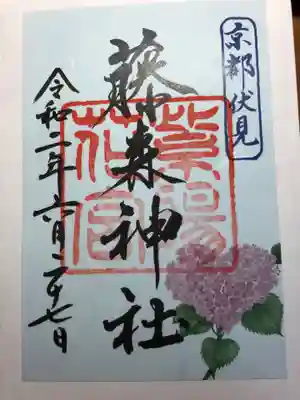 京都伏見
藤森神社
紫陽
花宮
令和二年六月二十七日